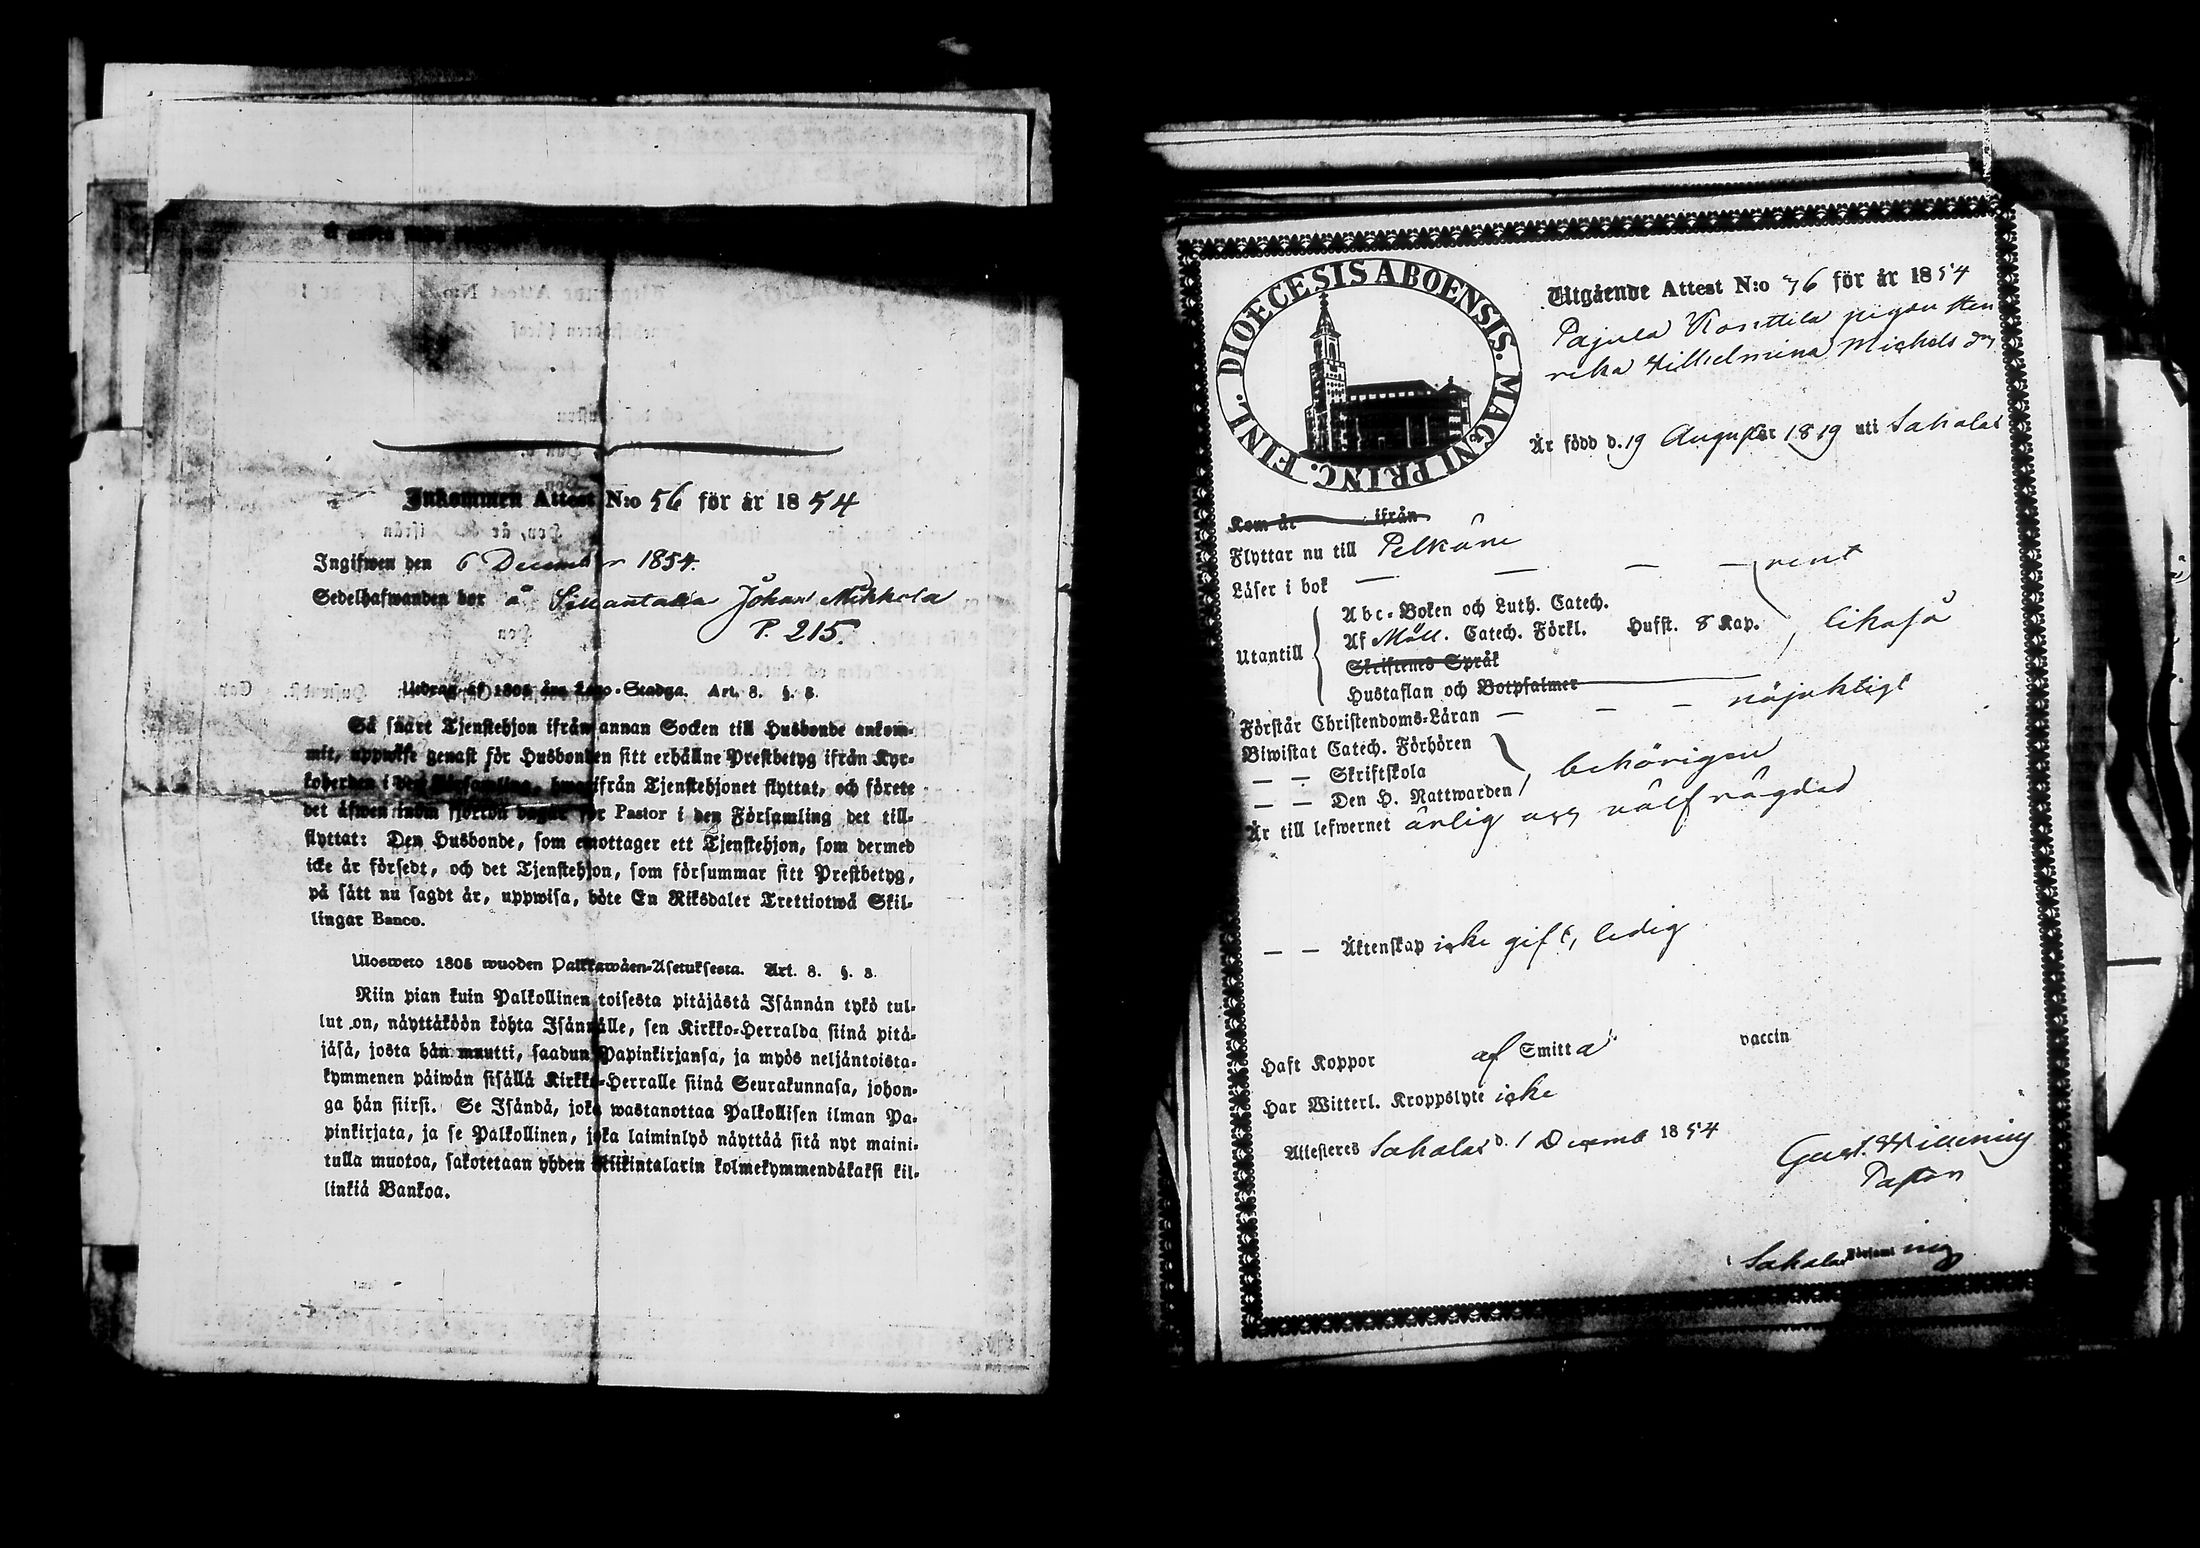 Inkommen Attest N:o 56 för år 1854
Ingifwen den 6 December 1854.
Sedelhafwanden bor å Johan Mikkola
P. 215.
Utdrag af 1805 års Lego-Stadga. Art. 8. §. 8.
Så snart Tjenstehjon ifrån annan Socken till Husbonde ankom-
mit, uppwise genast för Husbonden sitt erhållne Prestbetyg ifrån Kyr-
koherden i den Församling, hwarifrån Tjenstehjonet flyttat, och förete
det äfwen inom fjorton dagar för Pastor i den Församling det till-
flyttat: Den Husbonde, som emottager ett Tjenstehjon, som dermed
icke är försedt, och det Tjenstehjon, som försummar sitt Prestbetyg,
på sätt nu sagdt är, uppwisa, böte En Riksdaler Trettiotwå Skil-
lingar Banco.
Ulosweto 1805 wuoden Palkkawäen-Asetuksesta. Art. 8. §. 8.
Niin pian kuin Palkollinen toisesta pitäjästä Isännän tykö tul-
lut on, näyttäköön kohta Isännälle, sen Kirkko-Herralda siinä pitä-
jäsä, josta hän muutti, saadun Papinkirjansa, ja myös neljäntoista-
kymmenen päiwän sisällä Kirkko-Herralle siinä Seurakunnasa, johon-
ga hän siirsi. Se Isändä, joka wastanottaa Palkollisen ilman Pa-
pinkirjata, ja se Palkollinen, joka laiminlyö näyttää sitä nyt maini-
tulla muotoa, sakotetaan yhden Riikintalarin kolmekymmendäkaksi kil-
linkiä Bankoa.
DIOECESIS ABOENSIS. MAGNI PRINC. FINL.
Utgående Attest N:o 76 för år 1854
Pajula Konttila pigan Hen
rika Wilhelmina Michels dr
Är född d. 19 August år 1819 uti Sahalax
Kom år ifrån
Flyttar nu till Pelkäne
Läser i bok — — — — rent
Utantill
Abc-Boken och Luth. Catech.
Af Möll. Catech. Förkl. Hufst. 8 Kap. likaså
Skriftenes Språk
Hustaflan och Botpsalmer
Förstår Christendoms-Läran — — — nöjaktigt
Biwistat Catech. Förhören
— — Skriftskola
— — Den H. Nattwarden behörigen
Är till lefwernet ärlig och wälfrägdad
— — Äktenskap icke gift, ledig
Haft Koppor af Smitta vaccin
Har Witterl. Kroppslyte icke
Attesteres Sahalax d. 1 Decemb 1854
Gust.
Pastor
Sahalax Församling